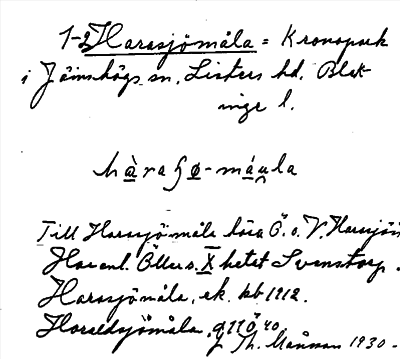 1-2 Harasjömåla = Kronopark
i Jämshögs sn, Listers hd. Blek-
inge l.
hàraʃø-máula
Till Harasjömåla höra Ö. o. V. Harasjöm
Har enl. Öller s. X hetet Svenstorp.
Harasjömåla, ek. kb 1912.
Haraldsjömåla, 
Th. Månsson 1930.